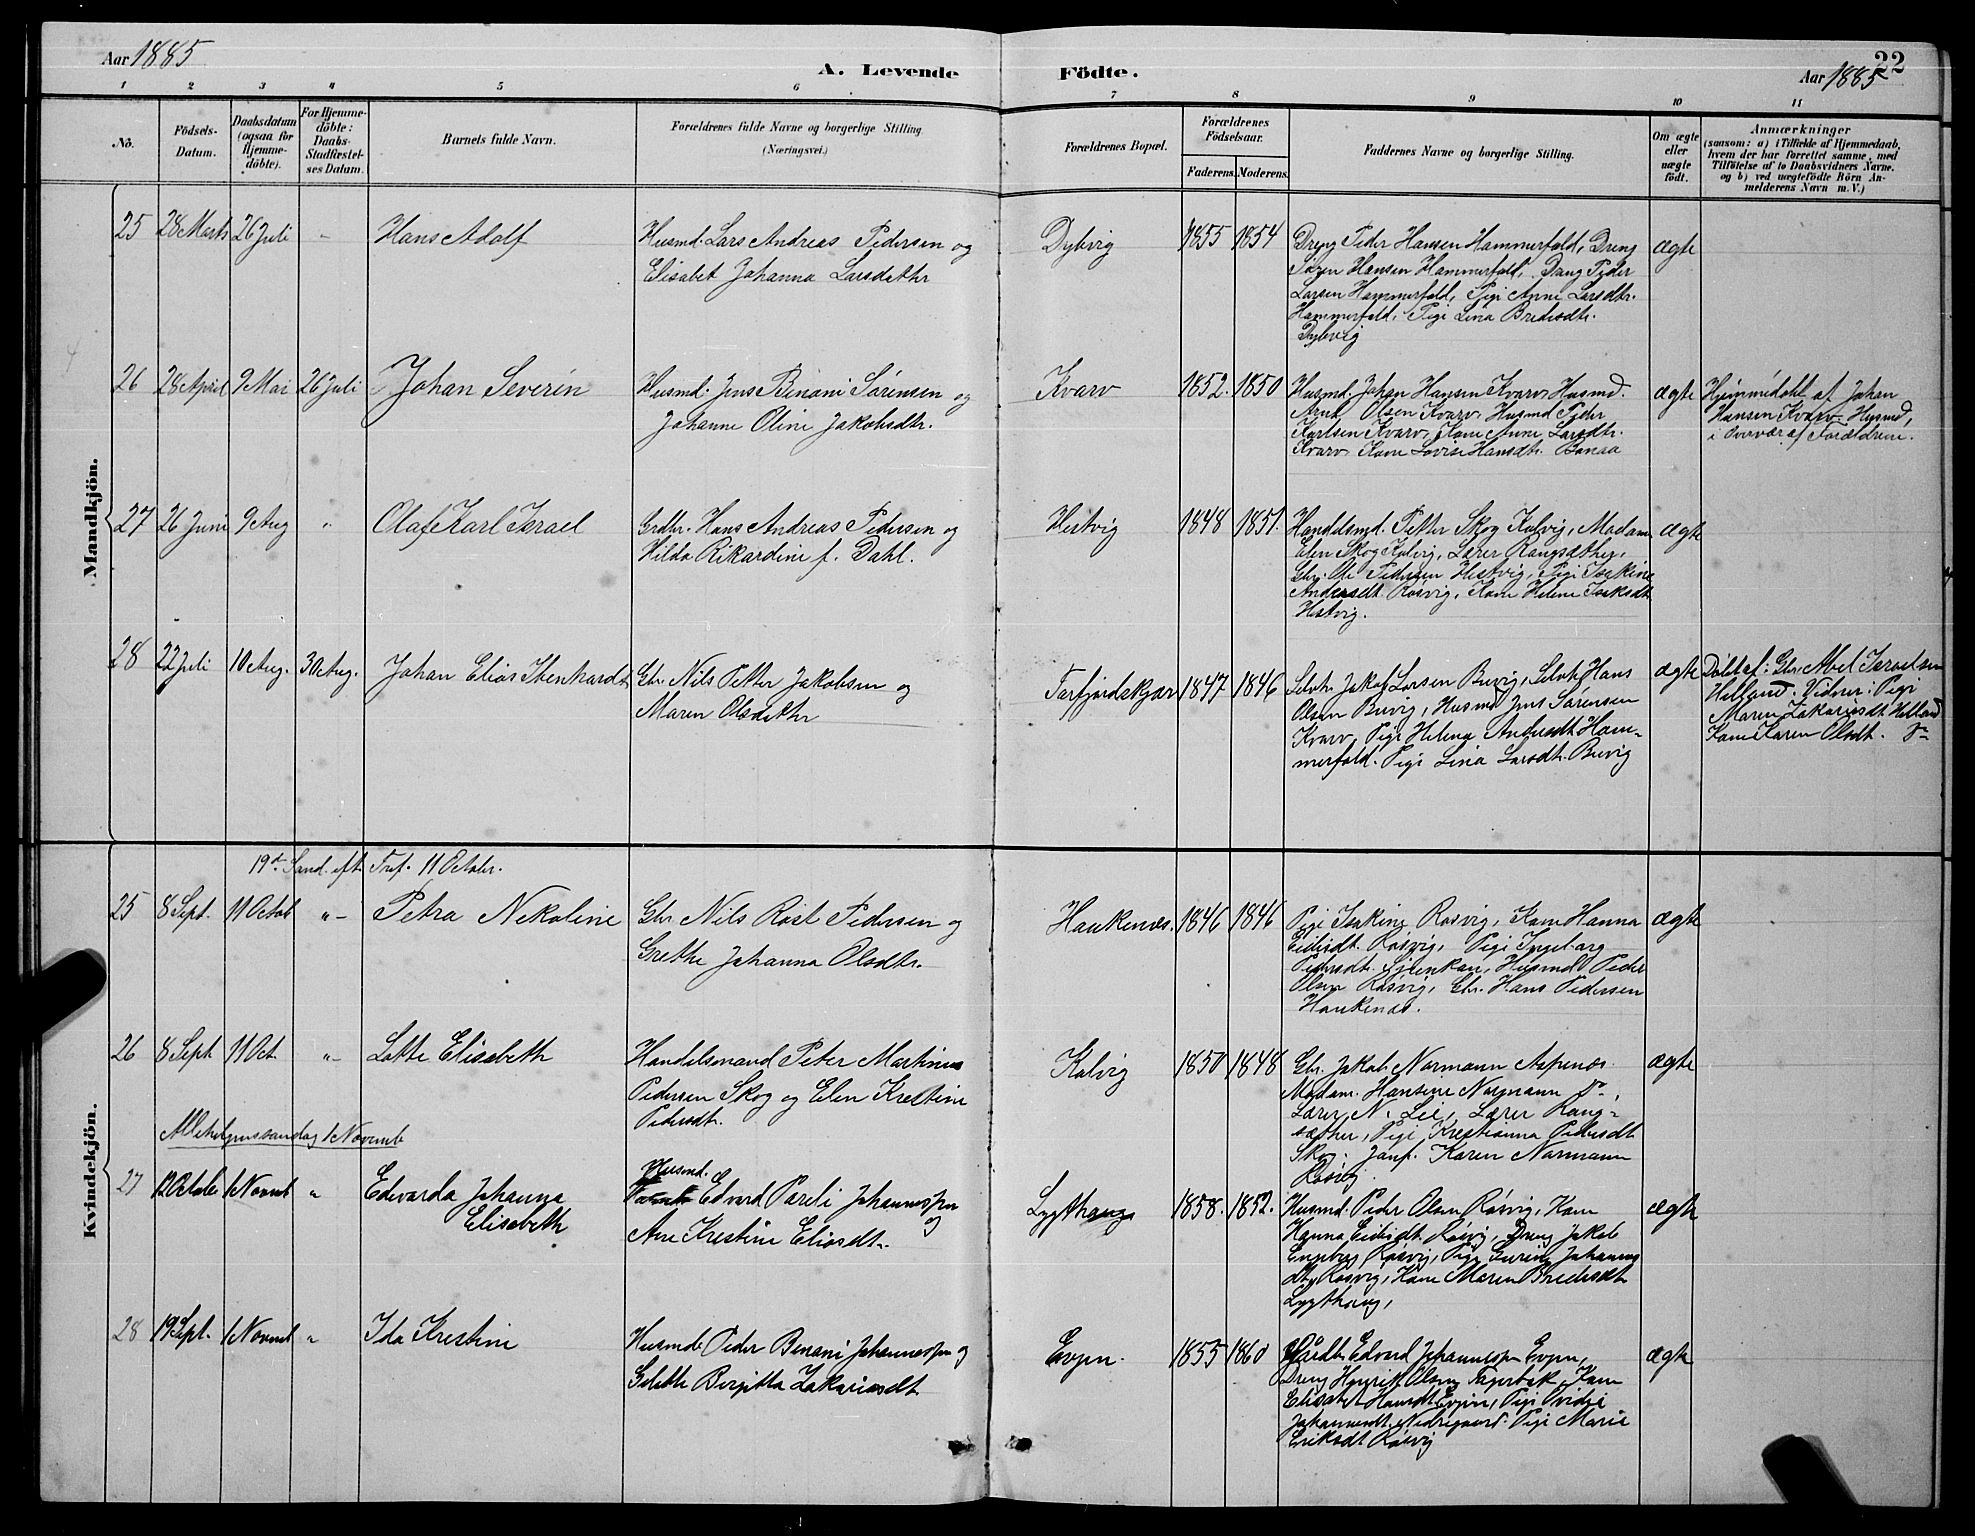 Aar 1885
A. Levende Födte.
22
Aar 1885
1 2 3 4 5 6 7 8 9 10 11
No.
Födsels-Datum.
Daabsdatum (ogsaa för Hjemme-döbte).
For Hjemme-döbte: Daabs-Stadfæstel-ses Datum.
Barnets fulde Navn.
Forældrenes fulde Navne og borgerlige Stilling.
(Næringsvei.)
Forældrenes Bopæl.
Forældrenes Födselsaar.
Faderens. Moderens.
Faddernes Navne og borgerlige Stilling.
Om ægte eller uægte födt.
Anmærkninger
(saasom: a) i Tilfælde af Hjemmedaab,
hvem der har forrettet samme, med
Tilföielse af to Daabsvidners Navne,
og b) ved uægtefödte Börn An-
melderens Navn m. V.)
Mandkjön.
25 28 Marts 26 Juli - Hans Adolf
Husmd. Lars Andreas Pedersen og
Elisabet Johanna Larsdatter
Dybvig 1855 1854
Dreng Peder Hansen Hammerfald, Dreng
Hansen Hammerfald, Dreng Peder
Larsen Hammerfald, Pige Anne Larsdtr.
Hammerfald, Pige Lina Bredesdtr.
Dybvig
ægte
26 28 April 9 Mai 26 Juli Johan Severin
Husmd. Jens Benoni Sörensen og
Johanne Oline Jakobsdtr.
Kvarv 1852. 1850
Husmd. Johan Hansen Kvarv, Husmd.
Arnt Olsen Kvarv, Husmd Peder
Karlsen Kvarv, Kone Anne Larsdtr.
Kvarv, Kone Lovise Hansdtr. Bonaa
ægte
Hjemmedöbt af Johan
Hansen Kvarv Husmd,
i Overvær af Forældrene.
27 26 Juni 9 Aug " Olaf Karl Israel
Grdbr. Hans Andreas Pedersen og
Hilda Rikardine f. Dahl.
Hestvig 1848 1851.
Handelsmd. Petter Skog Kalvig, Madam
Elen Skog Kalvig, Lærer Rangsæther,
Gbr. Ole Pedersen Hestvig, Pige Isakine
Andersdt. Rösvig, Kone Helene Isaksdt
Hestvig.
ægte
28 22 Juli 10 Aug. 30 Aug. Johan Elias Ibenhardt
Gbr. Nils Petter Jakobsen og
Maren Olsdatter
Tørfjordskjær 1847 1846
Selvhr. Jakob Larsen Buvig, Selvhr. Hans
Olsen Buvig, Husmd Jens Sörensen
Kvarv, Pige Helena Andersdt. Ham-
merfald. Pige Lina Larsdtr. Buvig
ægte
Döbt af: Gbr. Abel Israelsen
Helland. Vidner: Pige
Maren Zakariasdt. Helland
Kone Karen Olsdt. do
Kvindekjön.
19de Sönd. eft. Tref. 11 October.
25 8 Sept. 11 Octob " - Petra Nekoline
Gbr Nils Röst Pedersen og
Grethe Johanna Olsdtr.
Haukenæs. 1846 1846
Pige Isakine Rösvig, Kone Hanna
Eidisdt. Rösvig, Pige Ingeborg
Pedersdt. , Husmd Peder
Olsen Rösvig, Gbr. Hans Pedersen
Haukenæs.
ægte
26 8 Sept 11 Oct " - Lotte Elisabeth
Handelsmand Peter Martinus
Pedersen Skog og Elen Krestine
Pedersdt.
Kalvig 1850 1848
Gbr. Jakob Normann Aspenæs.
Madam. Hansine Normann do,
Lærer N. Lie, Lærer Rang-
sæther, Pige Krestianna Pedersdt
Skog. Jomf. Karen Normann
Rösvig.
ægte
Allehelgenssöndag 1 Novemb
27 12 Octob 1 Novmb " Edvarda Johanna
Elisabeth
Husmd. Edvard Pareli Johannessen
og
Ane Krestine Eliasdt.
Lygthaug 1858. 1852.
Husmd. Peder Olsen Rösvig, Kone
Hanna Eidisdt. Rösvig, Dreng Jakob
Engeberg Rösvig, Pige Johannes
dtr. Rösvig, Kone Maren Bredesdt
Lygthaug,
ægte
28 19 Sept. 1 Novmb " Ida Krestine
Husmd Peder Benoni Johannessen og
Birgitta Zakariasdt
Evjen. 1855 1860
Gårdbr Edvard Johannessen Evjen,
Dreng Henrik Olsen Fagerbak, Kone
Elisabet Hansdt Evjen, Pige
Johannesdt. Nedregaard. Pige Marie
Eriksdt Rösvig
ægte